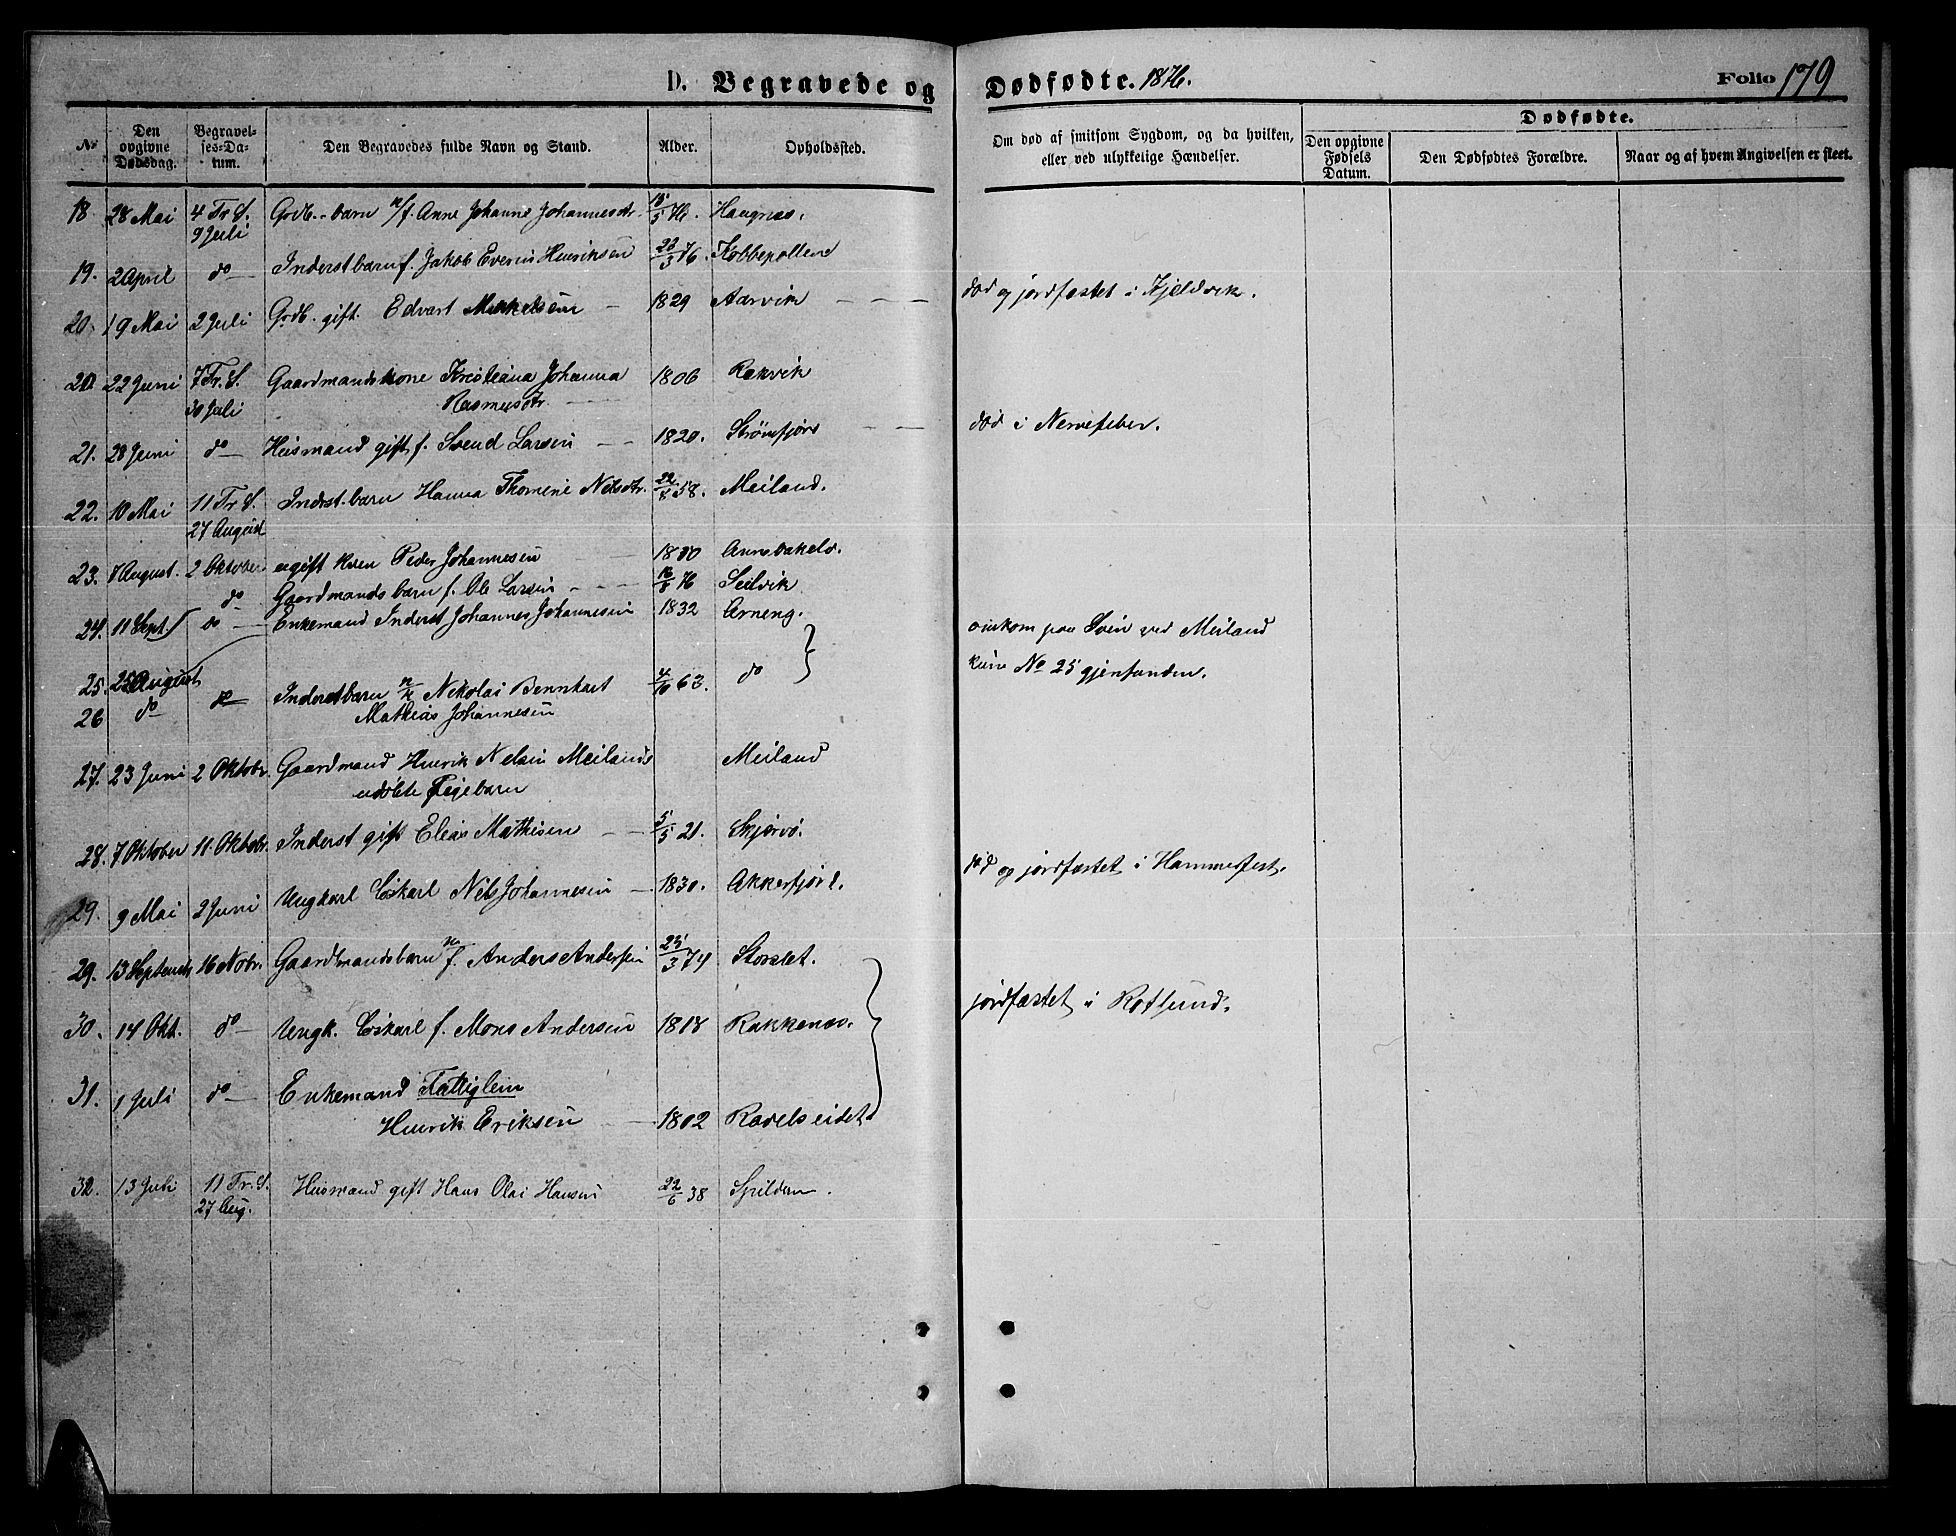 D. Begravede og Dødfødte. 1876. Folio 179
No
Den opgivne Dødsdag.
Begravelses-Datum.
Den Begravedes fulde Navn og Stand.
Alder.
Opholdssted.
Om død af smitsom Sygdom, og da hvilken, eller ved ulykkelige Hændelser.
Dødfødte.
Den opgivne Fødsels Datum.
Den Dødfødtes Forældre.
Naar og af hvem Angivelsen er skeet.
18 28 Mai 4 Tr. S. Grdb.-barn n/f. Anne Johanne Johannesdtr. 76. Haugnæs.
9 Juli
19. 2 April do Inderstbarn f. Jakob Everius Henriksen 23/3 76. Kobbepollen
20. 19 Mai 2 Juli Grdb. gift. Edvart Mikkelsen 1829 Aarvik død og jordfæstet i Kjeldvik.
20. 22 Juni 7 Tr. S. Gaardmandskone Kristiana Johanna 1806 Rakvik
30 Juli Rasmusdtr.
21. 28 Juni do Husmand gift f. Svend Larsen 1820. Strømfjord død i Nervefeber.
22. 10 Mai 11 Tr. S. Inderst-barn Hanna Thomine Nilsdtr. 58. Meiland.
27 August
23. August. 2 Oktober ugift kven Peder Johannesen
do Gaardmandsbarn f. Ole Larsen 76 Seilvik
24. 11 Sept. do Enkemand Inderst Johannes Johannesen 1832 Arneng. omkom paa Søen ved Meiland
25. 25 August kun No 25 gjenfunden.
26 do Inderstbarn Nikolai Bernhart 63. do
Mathias Johannesen
27. 23 Juni 2 Oktobr. Gaardmand Henrik Nelsen Meilands Meiland
udøbte Pigebarn
28. 7 Oktober 11. Oktobr. Inderst gift Elias Mathisen 5/5 21. Skjærvø.
29. 9 Mai 2 Juni Ungkarl Løskarl Nils Johannesen 1830. Akkerfjord. død og jordfæstet i Hammerfest.
29. 13 Septemb. 16 Nobr. Gaardmandsbarn f. Anders Andersen 25/3 74 Storslet.
jordfæstet i Rotsund.
30. 14 Okt. do Ungk. Løskarl f. Mons Andersen 1818 Rakkenæs.
31. 1 Juli do Enkemand Fattiglem
Henrik Eriksen 1802 Ravelseidet
32. 13 Juli 11 Tr. S. Husmand gift Hans Olai Hansen 22/6 38 Spildern.
27 Aug.